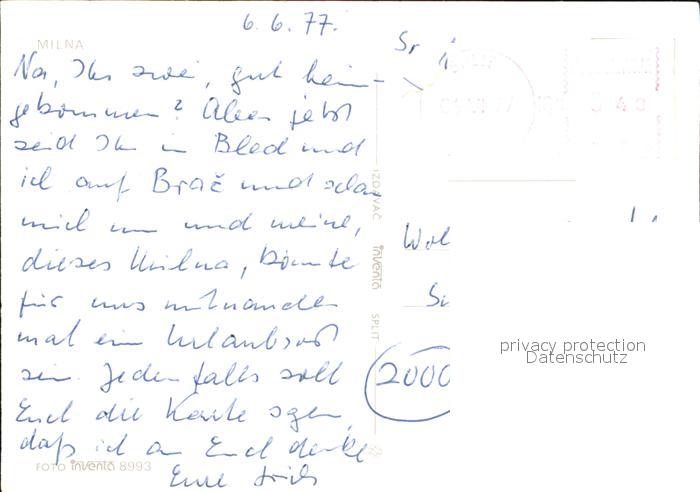 6. 6. 77.
MILNA
Na, Ihr zwei, gut heim-
gekommen? Aber jetzt
seid Ihr in Bled und
ich auf Brač und schau
mich um und meine,
dieses Milna, könnte
für uns miteinander
mal ein Urlaubsort
sein. Jedenfalls soll
Euch die Karte sagen,
daß ich an Euch denke
Eure
FOTO inventa 8993
IZDAVAČ inventa SPLIT
2000
privacy protection
Datenschutz